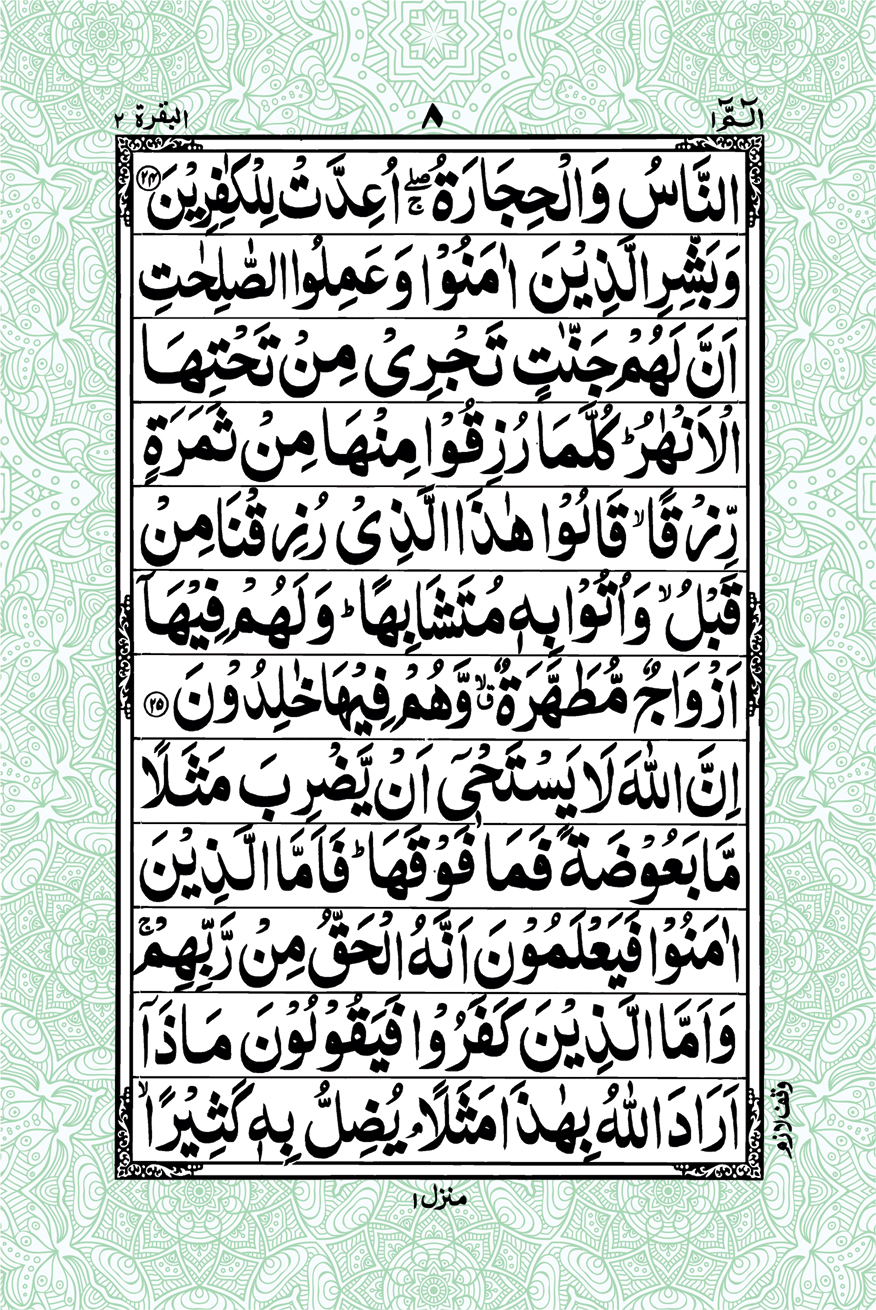 الٓـمّٓ ١
٨
البقرة ٢
النَّاسُ وَالْحِجَارَةُ ۖۚ اُعِدَّتْ لِلْكٰفِرِيْنَ ﴿٢٤﴾
وَبَشِّرِ الَّذِيْنَ اٰمَنُوْا وَعَمِلُوا الصّٰلِحٰتِ
اَنَّ لَهُمْ جَنّٰتٍ تَجْرِىْ مِنْ تَحْتِهَا
الْاَنْهٰرُ ؕ كُلَّمَا رُزِقُوْا مِنْهَا مِنْ ثَمَرَةٍ
رِّزْقًا ۙ قَالُوْا هٰذَا الَّذِىْ رُزِقْنَا مِنْ
قَبْلُ ۙ وَاُتُوْا بِهٖ مُتَشَابِهًا ؕ وَلَهُمْ فِيْهَآ
اَزْوَاجٌ مُّطَهَّرَةٌ ۙق وَّهُمْ فِيْهَا خٰلِدُوْنَ ﴿٢٥﴾
اِنَّ اللّٰهَ لَا يَسْتَحْىٖۤ اَنْ يَّضْرِبَ مَثَلًا
مَّا بَعُوْضَةً فَمَا فَوْقَهَا ؕ فَاَمَّا الَّذِيْنَ
اٰمَنُوْا فَيَعْلَمُوْنَ اَنَّهُ الْحَقُّ مِنْ رَّبِّهِمْ ۚ
وَاَمَّا الَّذِيْنَ كَفَرُوْا فَيَقُوْلُوْنَ مَاذَآ
اَرَادَ اللّٰهُ بِهٰذَا مَثَلًا ۘ يُضِلُّ بِهٖ كَثِيْرًا ۙ
وقف لازم
منزل ١